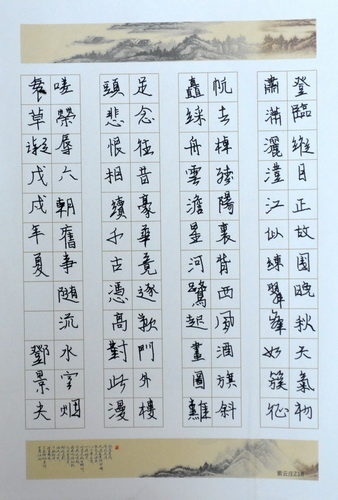 登臨縱目正故國晚秋天氣初
肅瀟灑澄江似練翠峰如簇征
帆去棹殘陽裏背西風酒旗斜
矗綵舟雲澹星河鷺起畫圖難
足念往昔豪華竟逐歎門外樓
頭悲恨相續千古憑高對此漫
嗟榮辱六朝舊事隨流水寒烟
衰草凝戊戌年夏 鄧景夫